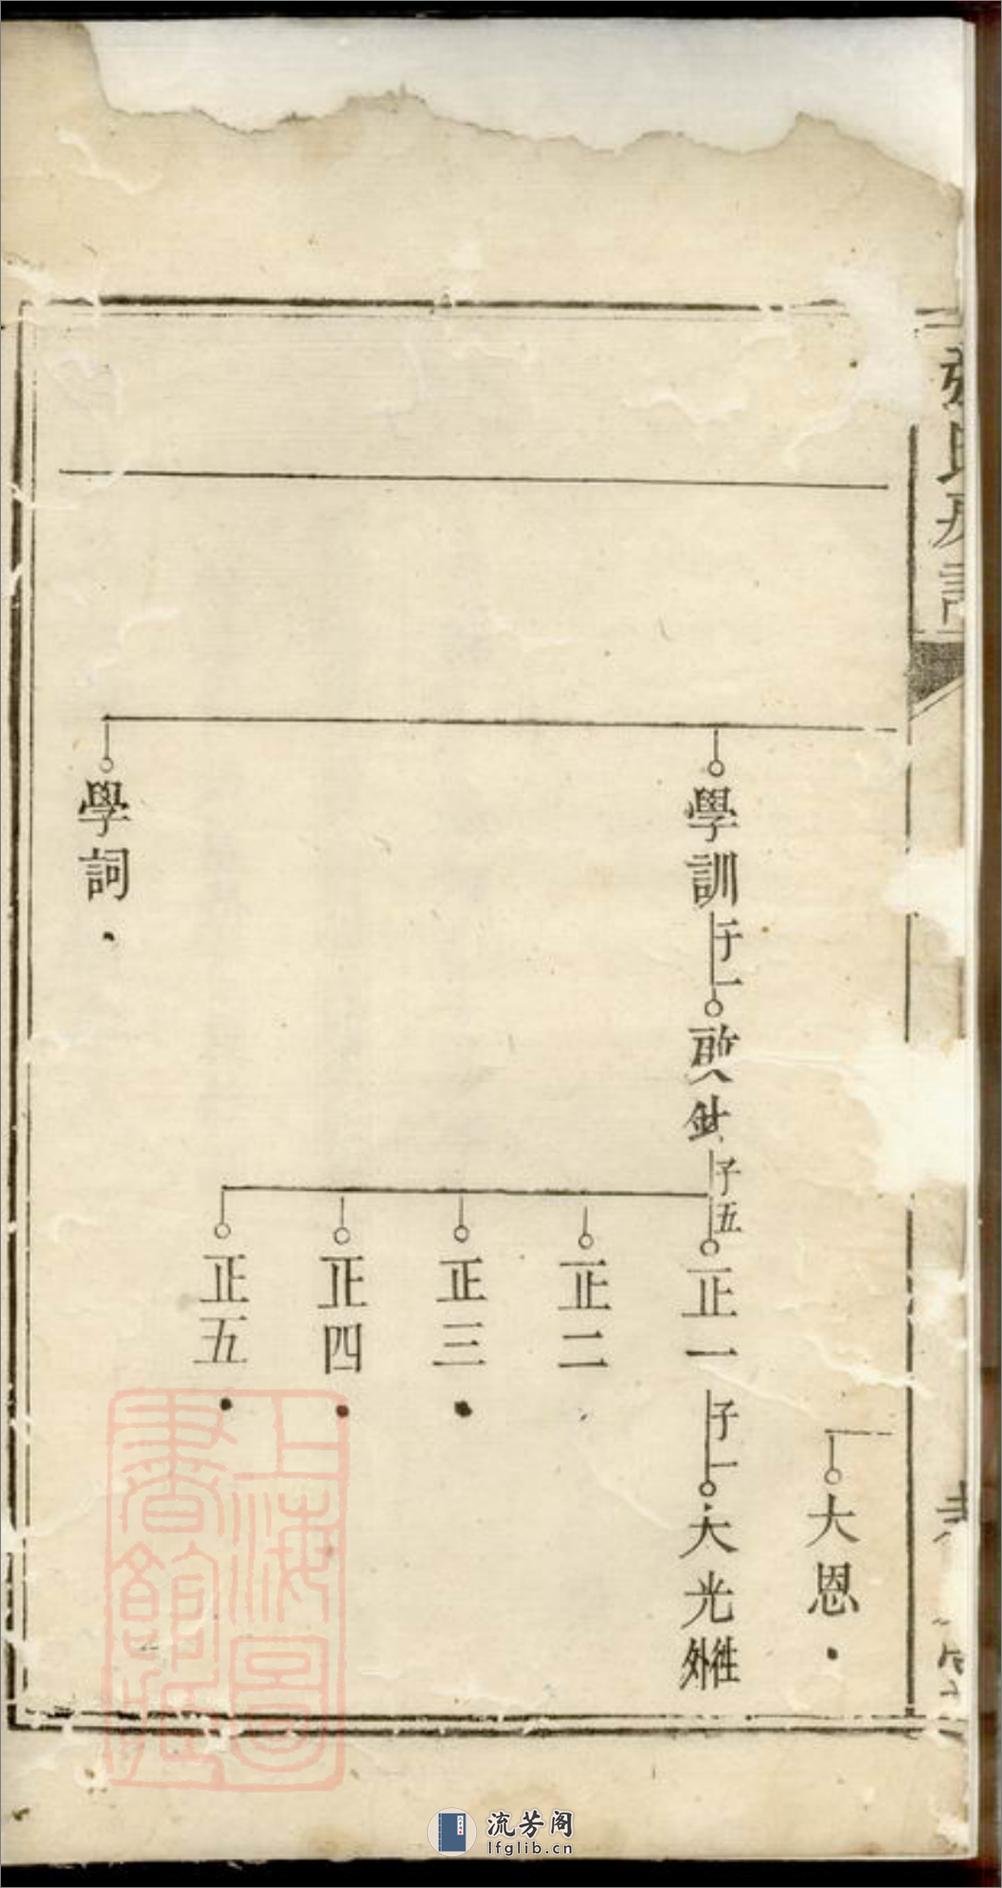 張氏房譜
大恩
學訓
子一
子五
正一
子一
大光徃外
正二
正三
正四
正五
學詞
上海圖書館藏
流芳阁
lfglib.cn